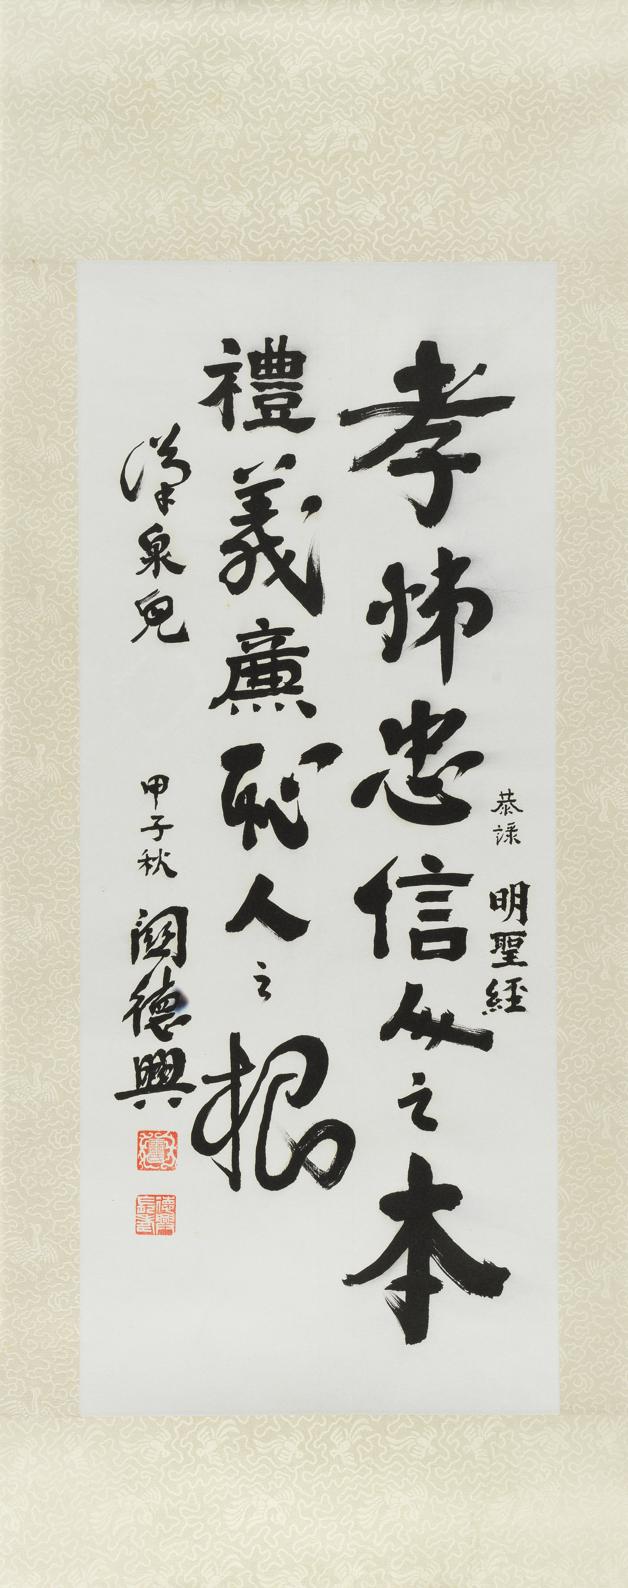 恭錄 明聖經
孝悌忠信人之本
禮義廉恥人之根
漢泉兒
甲子秋 關德興